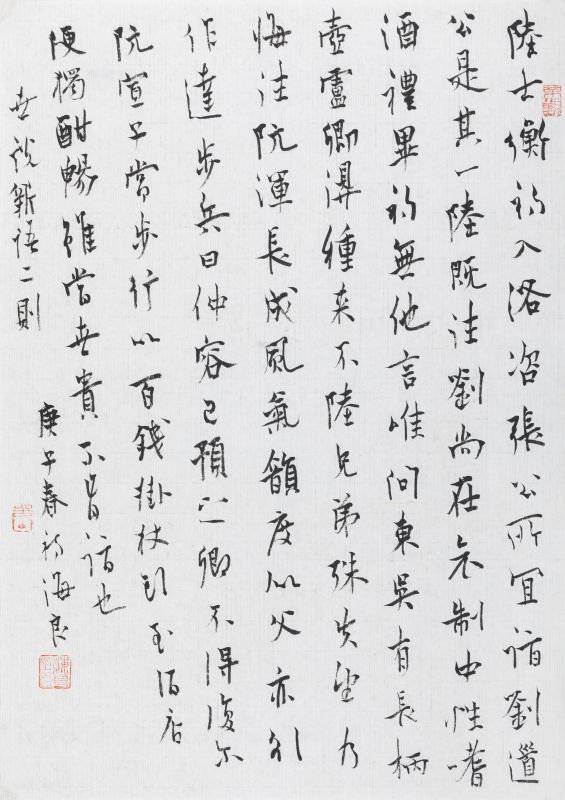 陸士衡初入洛咨張公所宜詣劉道
公是其一陸既往劉尚在哀制中性嗜
酒禮畢初無他言唯問東吳有長柄
壺盧卿得種来不陸兄弟殊失望乃
悔往阮渾長成風氣韻度似父亦欲
作達步兵曰仲容已預之卿不得復尔
阮宣子常步行以百錢掛杖頭至酒店
便獨酣暢雖當世貴不肯詣也
世說新語二則
庚子春初海良